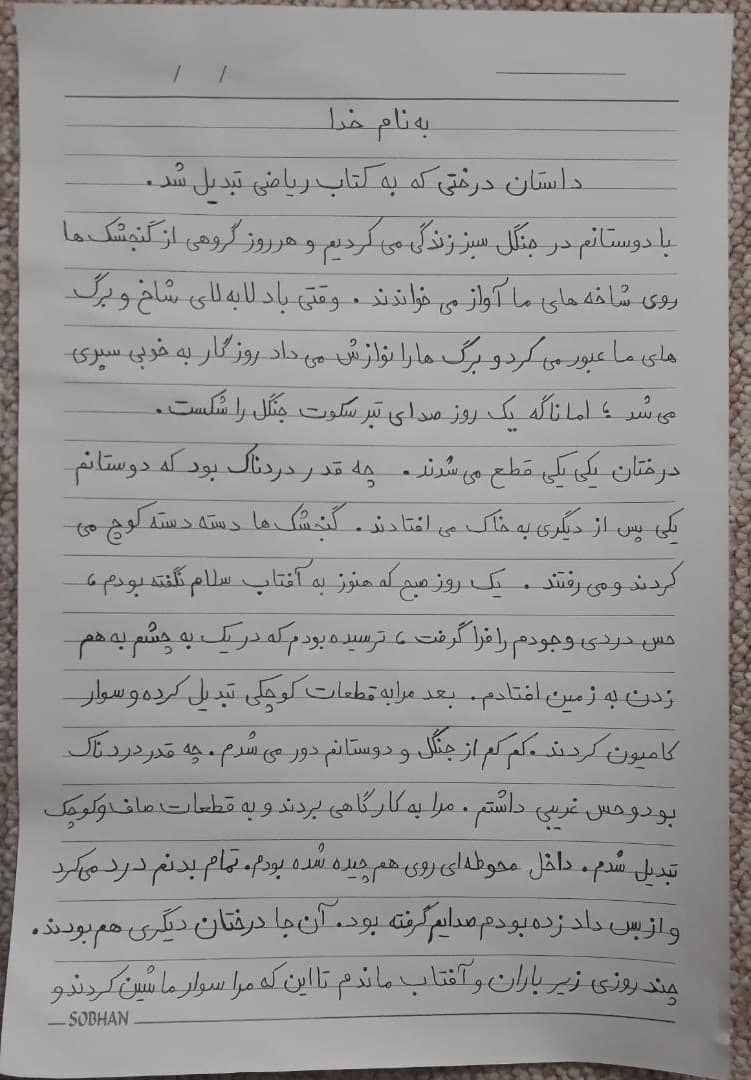 / /
به نام خدا
داستان درختی که به کتاب ریاضی تبدیل شد.
با دوستانم در جنگل سبز زندگی می کردیم و هر روز گروهی از گنجشک ها
روی شاخه های ما آواز می خواندند. وقتی باد لا به لای شاخ و برگ
های ما عبور می کرد و برگ ها را نوازش می داد روزگار به خوبی سپری
می شد ؛ اما ناگه یک روز صدای تبر سکوت جنگل را شکست.
درختان یکی یکی قطع می شدند. چه قدر دردناک بود که دوستانم
یکی پس از دیگری به خاک می افتادند. گنجشک ها دسته دسته کوچ می
کردند و می رفتند. یک روز صبح که هنوز به آفتاب سلام نگفته بودم ،
حس دردی وجودم را فرا گرفت ، ترسیده بودم که در یک به چشم به هم
زدن به زمین افتادم. بعد مرا به قطعات کوچکی تبدیل کرده و سوار
کامیون کردند. کم کم از جنگل و دوستانم دور می شدم. چه قدر دردناک
بود و حس غریبی داشتم. مرا به کارگاهی بردند و به قطعات صاف و کوچک
تبدیل شدم. داخل محوطه ای روی هم چیده شده بودم. تمام بدنم درد می کرد
و از بس داد زده بودم صدایم گرفته بود. آن جا درختان دیگری هم بودند.
چند روزی زیر باران و آفتاب ماندم تا این که مرا سوار ماشین کردند و
SOBHAN